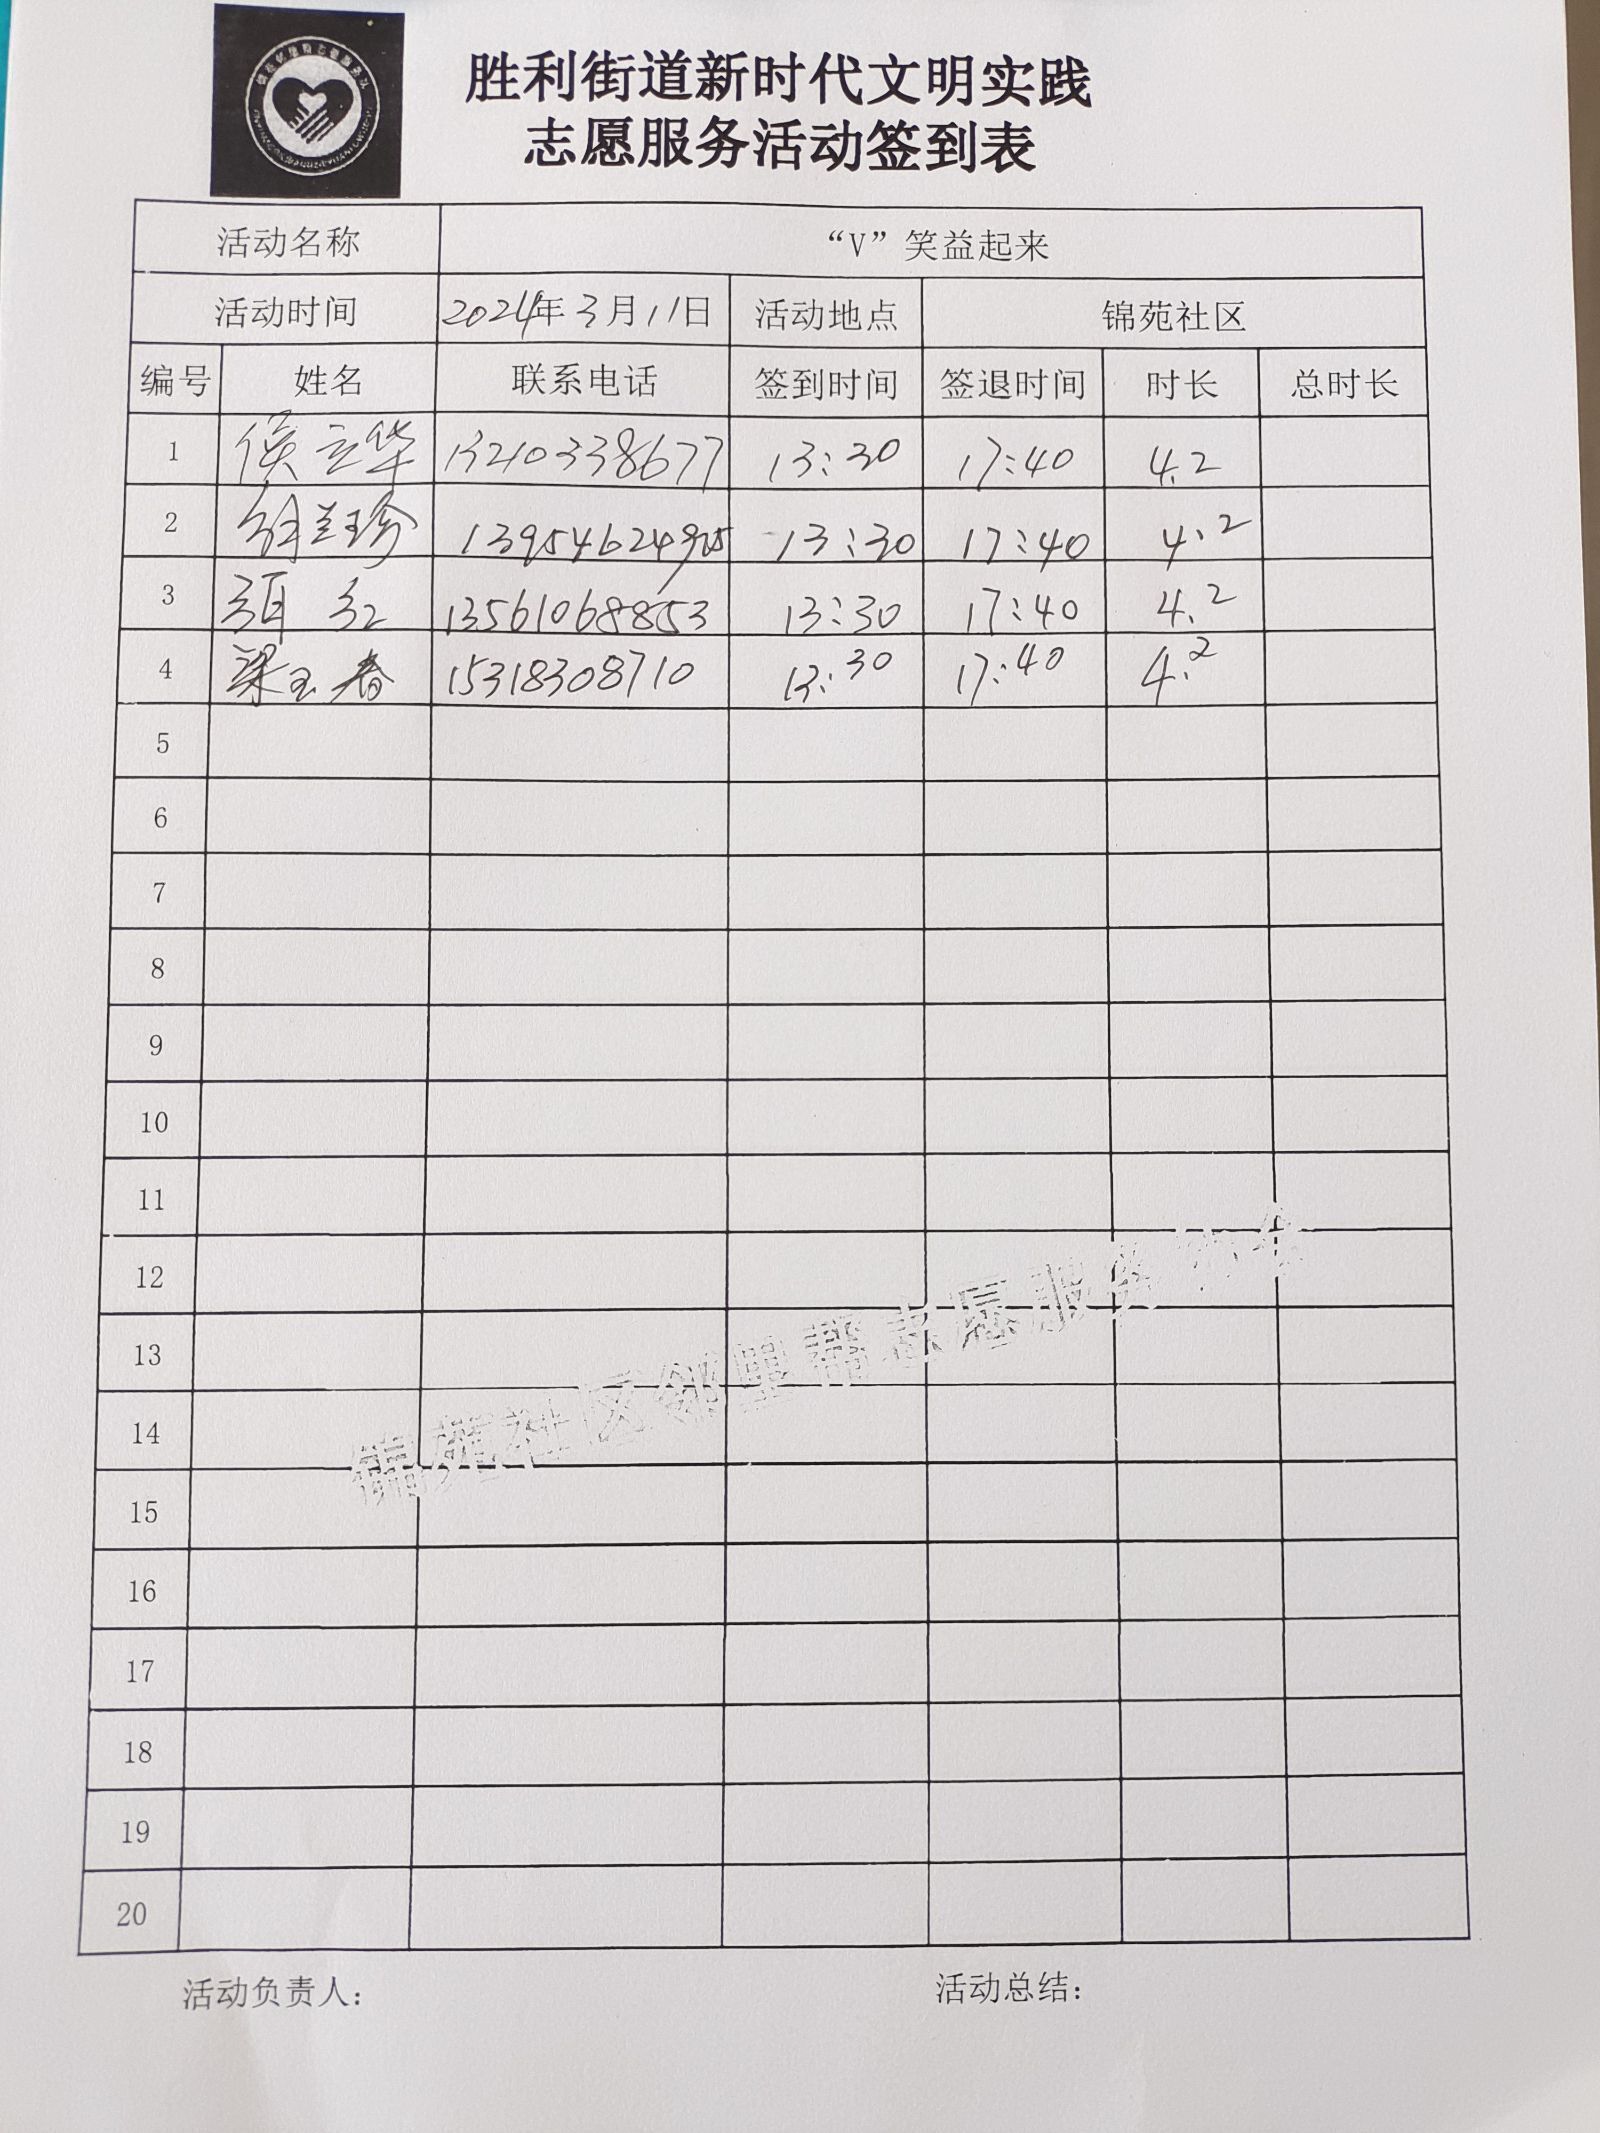 胜利街道新时代文明实践
志愿服务活动签到表
活动名称 “V”笑益起来
活动时间 2024年3月11日 活动地点 锦苑社区
编号 姓名 联系电话 签到时间 签退时间 时长 总时长
1 侯立华 13210338677 13:30 17:40 4.2
2 兰珍 13:30 17:40 4.2
3 红 13561068853 13:30 17:40 4.2
4 梁玉春 15318308710 13:30 17:40 4.2
5
6
7
8
9
10
11
12
13
14
15
16
17
18
19
20
锦苑社区邻里帮志愿服务
活动负责人: 活动总结: